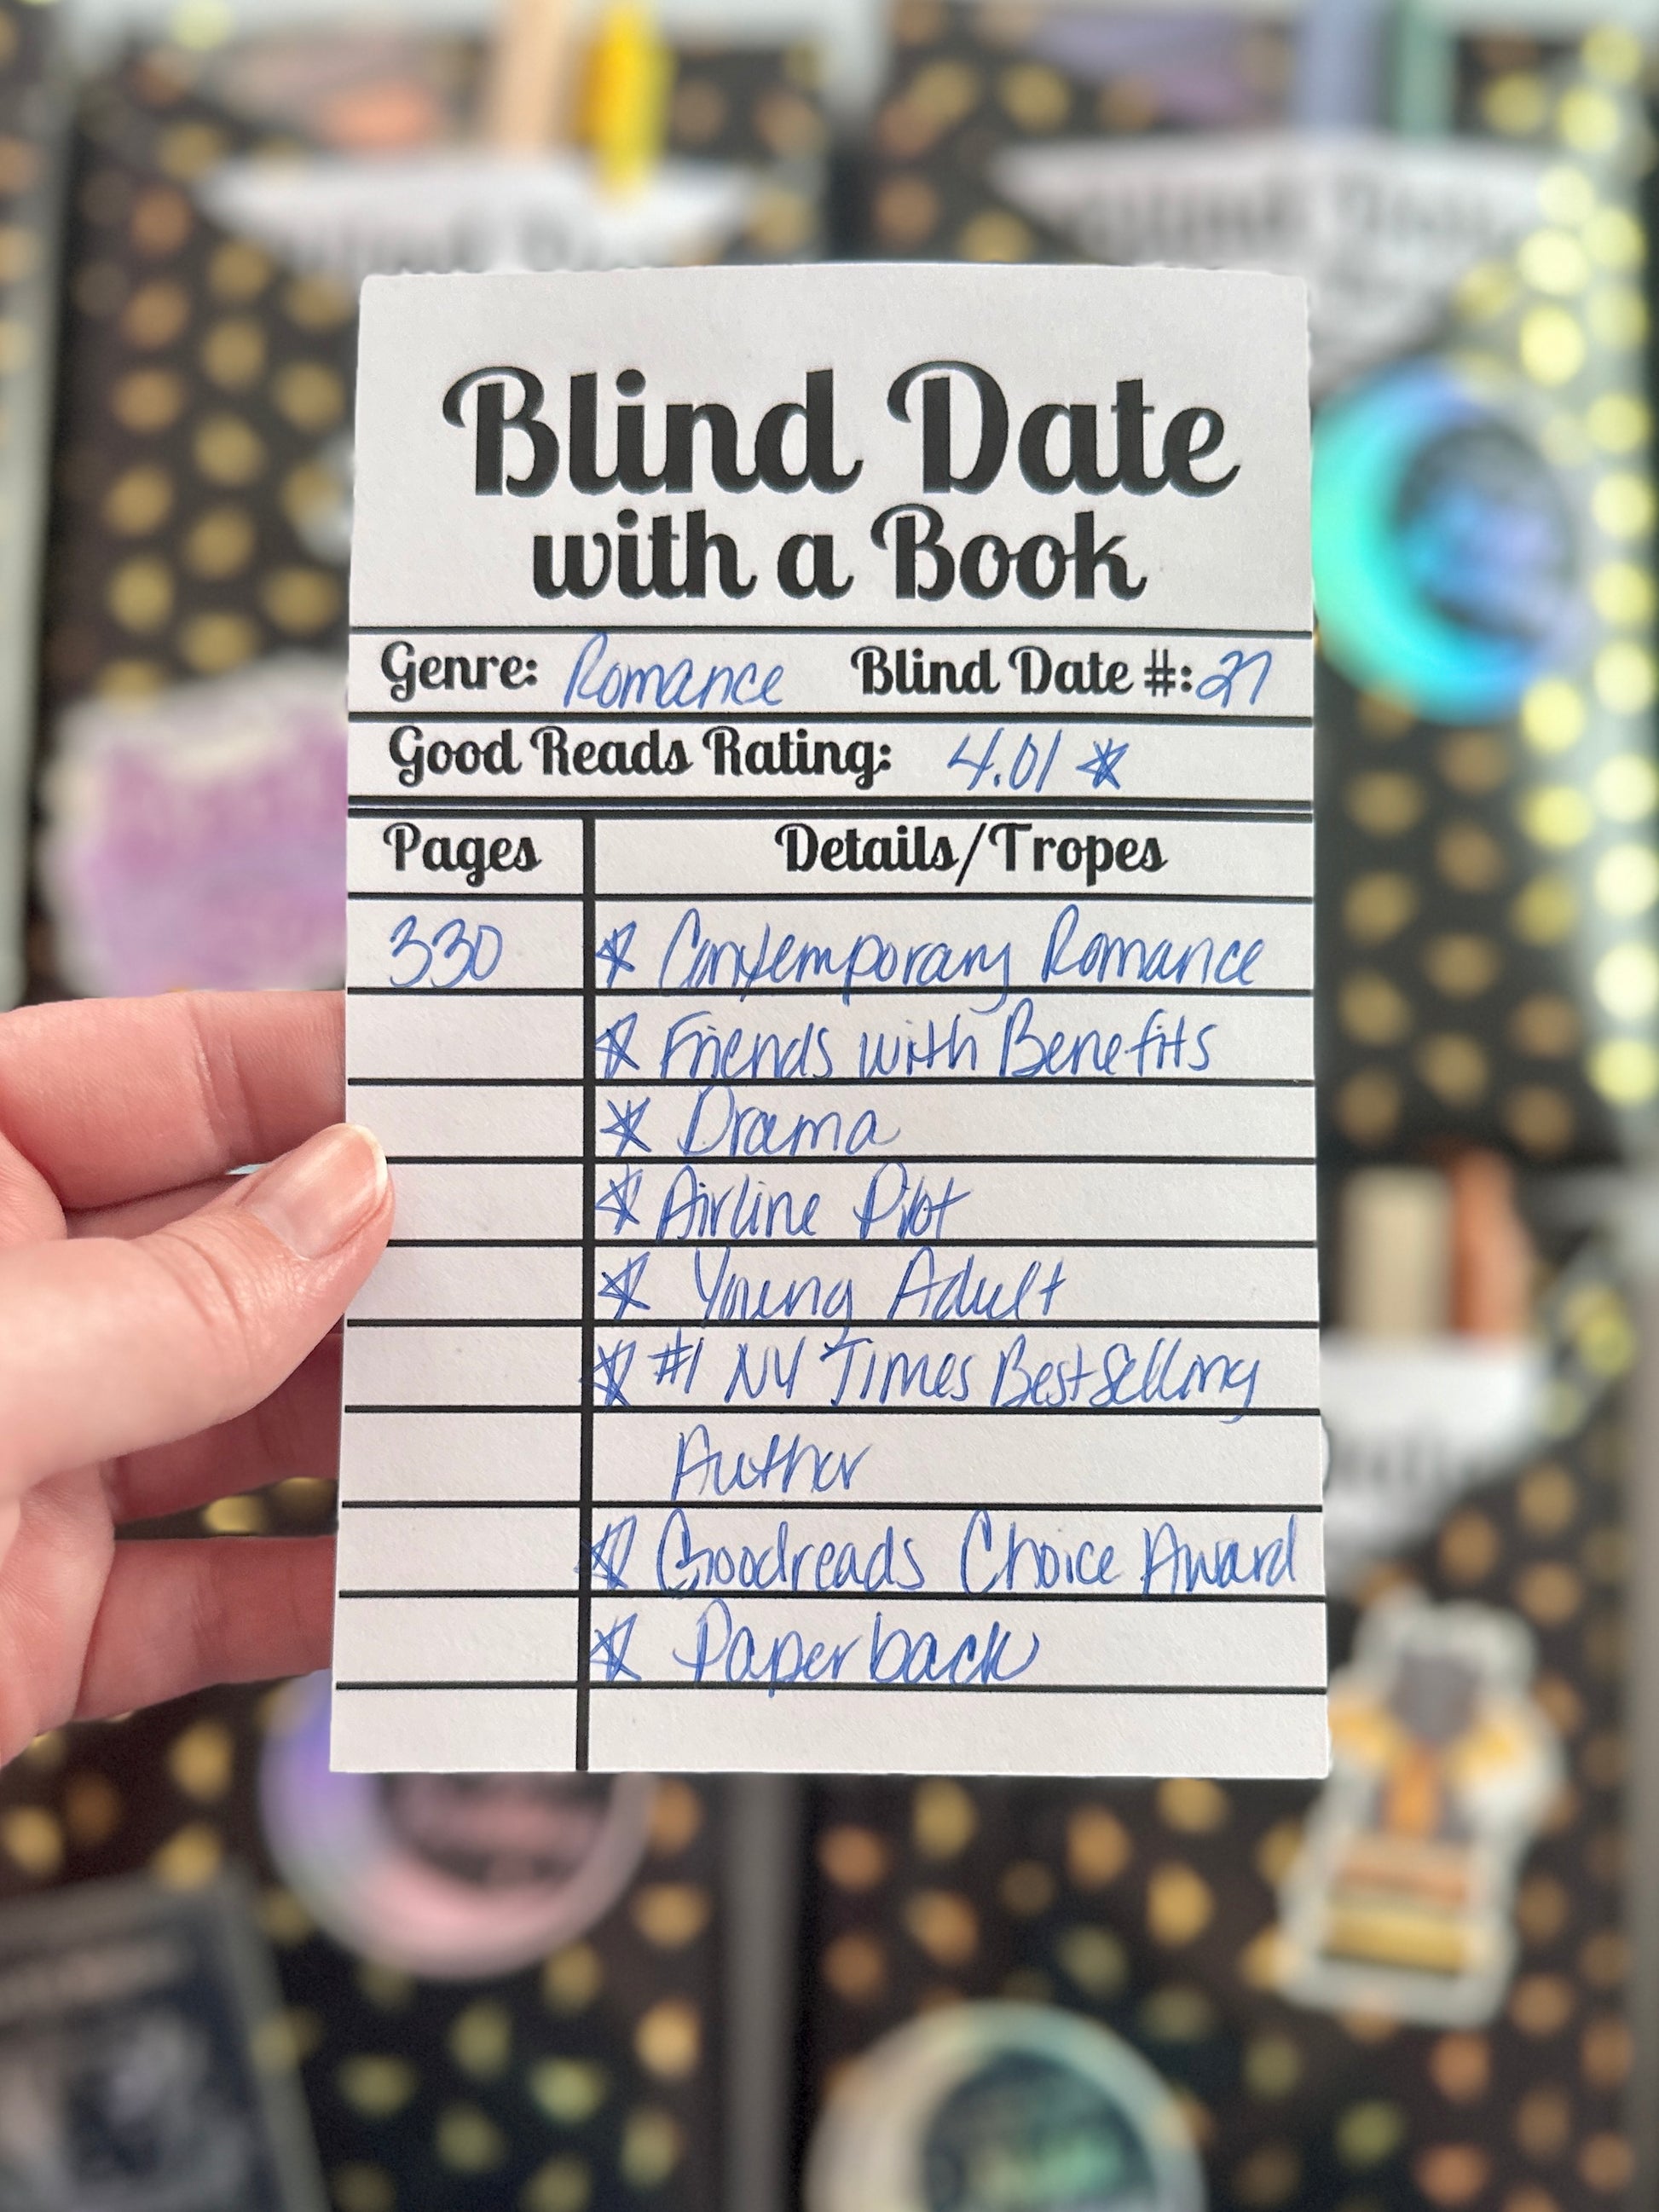 Blind Date
with a Book
Genre: Romance Blind Date #: 27
Good Reads Rating: 4.01 ★
Pages Details/Tropes
330 ★ Contemporary Romance
★ Friends with Benefits
★ Drama
★ Airline Pilot
★ Young Adult
★ #1 NY Times Best Selling
Author
★ Goodreads Choice Award
★ Paperback